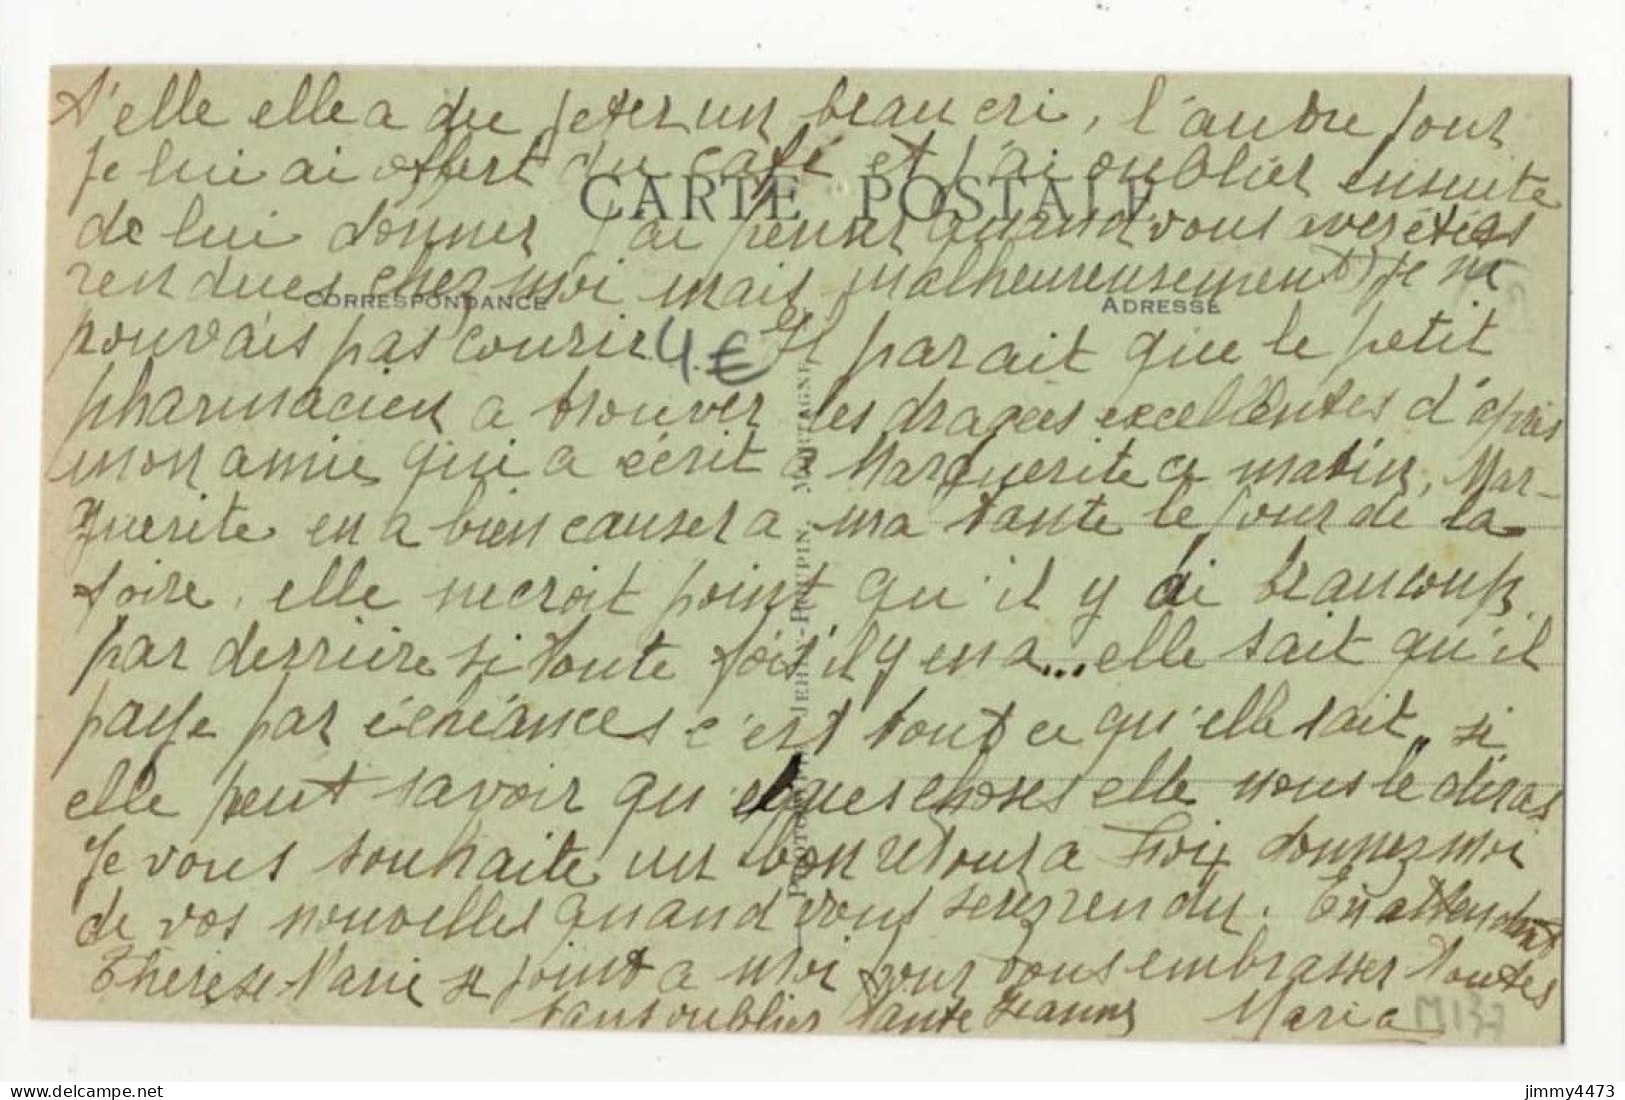 d'elle elle a du jeter un beau cri, l'autre jour
je lui ai offert du café et j'ai oublier ensuite
CARTE POSTALE
de lui donner j'ai penser quand vous avez étées
rendues chez moi mais malheureusement je ne
CORRESPONDANCE
ADRESSE
pouvais pas courir. Il parait que le petit
4 €
pharmacien a trouver les dragees excellentes d'apris
mon amie qui a écrit a Marguerite ce matin, Mar-
guerite en a bien causer a ma tante le jour de la
foire, elle ne croit point qu'il y ai beaucoup
par derriere si toute fois s'il y en a... elle sait qu'il
paye par échéances c'est tout ce qu'elle sait, si
elle peut savoir quelques choses elle nous le diras
Je vous souhaite un bon retour a Foix donnez moi
de vos nouvelles quand vous serez rendu. En attendant
Thérèse-Marie se joint a moi pour vous embrasser toutes
sans oublier tante Jeanne Maria
M137
PHOTOTYPIE JEHIN-POUPIN, MORTAGNE
jimmy4473